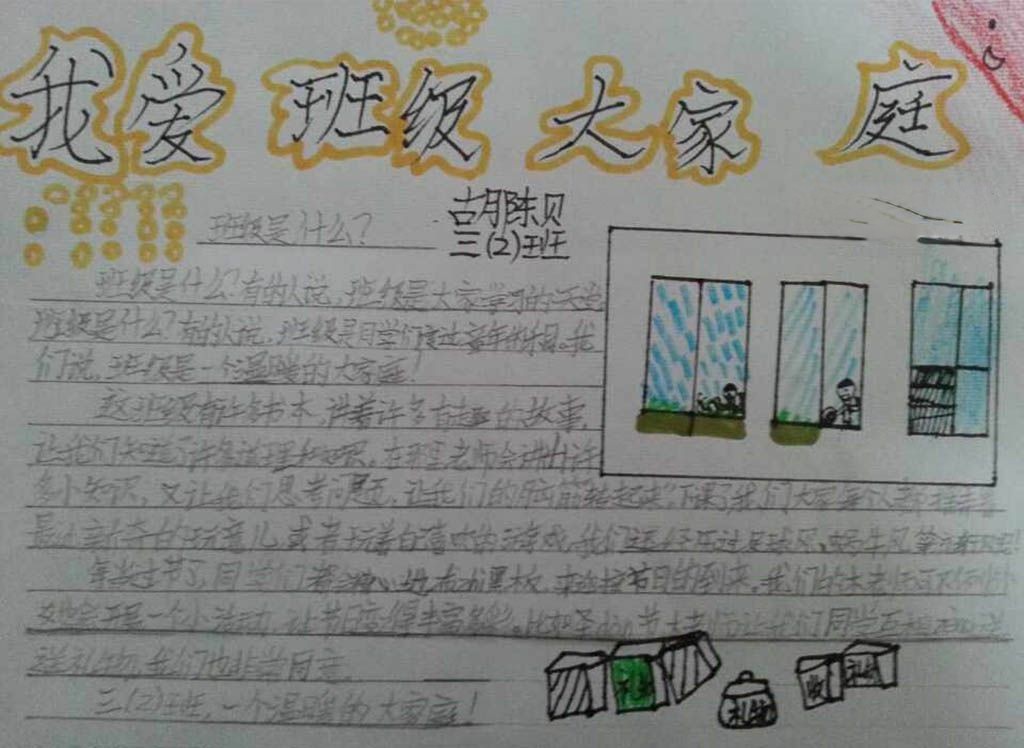 我爱班级大家庭
胡陈贝
三(2)班
班级是什么?
班级是什么?有的人说,班级是大家学习的天堂
班级是什么?有的人说,班级是同学们度过童年的我
们说,班级是一个温暖的大家庭!
这班级有许多书本,讲着许多有趣的故事,
让我们知道了许多道理和知识,在那里老师会讲许
多小知识,又让我们思考问题,让我们的脑筋转起来?下课了我们大家每个人都
最新奇的玩意儿或者玩着自喜欢的游戏,我们还玩过足球风,蜗牛风等
每当过节了,同学们都精心地布置黑板,来迎接节日的到来。我们的老师
她会开展一个小活动,让节日变得丰富多彩。比如圣dàn节老师让我们同学互相送
送礼物,我们也非常开心
三(2)班,一个温暖的大家庭!
礼物
礼物
收
礼物